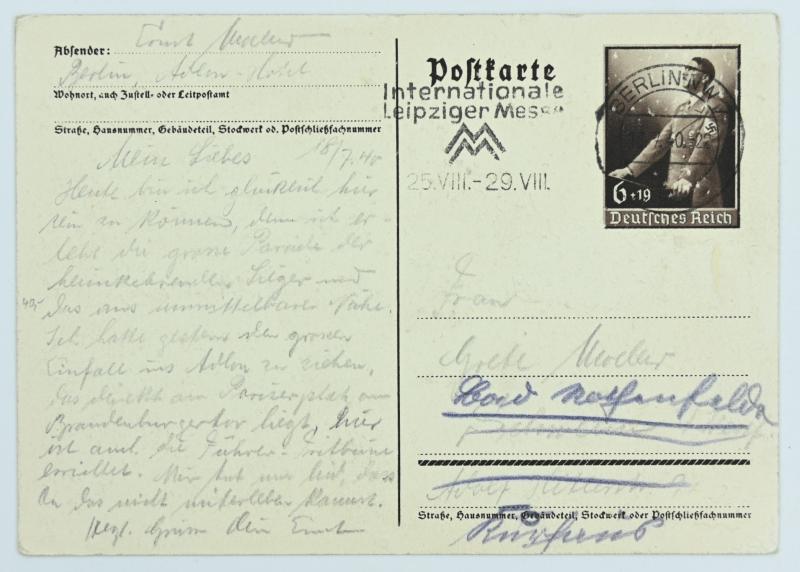 Absender: Ernst
Berlin, Adlon-Hotel
Wohnort, auch Zustell- oder Leitpostamt
Straße, Hausnummer, Gebäudeteil, Stockwerk od. Postschließfachnummer
Mein Liebes 18/7.40
Heute bin ich glücklich hier
sein zu können, denn ich er-
lebe die grosse Parade der
heimkehrenden Sieger und
das aus unmittelbarer Nähe.
Ich hatte gestern den grossen
Einfall ins Adlon zu ziehen,
das direkt am Pariserplatz am
Brandenburgertor liegt, hier
ist auch die Führer-Tribüne
errichtet. Mir tut nur leid, dass
Du das nicht miterleben kannst.
Herzl. Gruss Dein Ernst
40,-
Postkarte
Internationale
Leipziger Messe
25.VIII.-29.VIII.
BERLIN NW
40
6+19
Deutsches Reich
Frau
Grete
Bad Rothenfelde
Adolf Hitler
Straße, Hausnummer, Gebäudeteil, Stockwerk oder Postschließfachnummer
Kurhaus